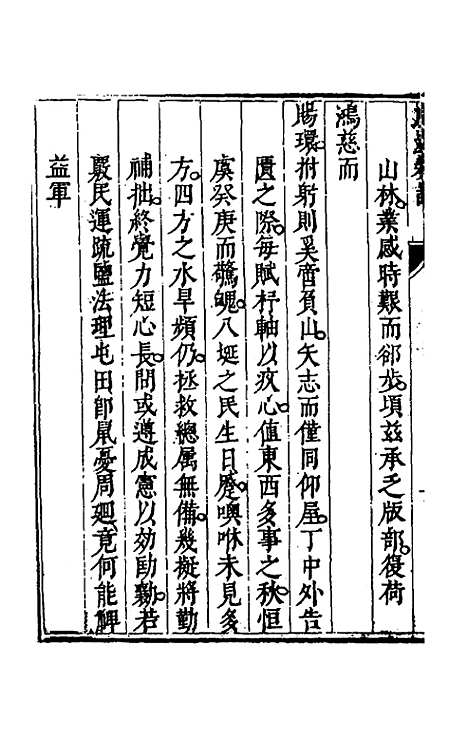 山林業感時艱而卻步頃兹承乏版部復荷
鴻慈而
賜環拊躬則奚啻負山矢志而僅同仰屋丁中外告
匱之際每賦杼軸以疚心值東西多事之秋恒
虞癸庚而驚魄八埏之民生日蹙噢咻未見多
方四方之水旱頻仍拯救總属無備幾擬將勤
補拙終覺力短心長問或遵成憲以効助勷若
覈民運疏鹽法理屯田即鼠憂周𢌞竟何能裨
益軍